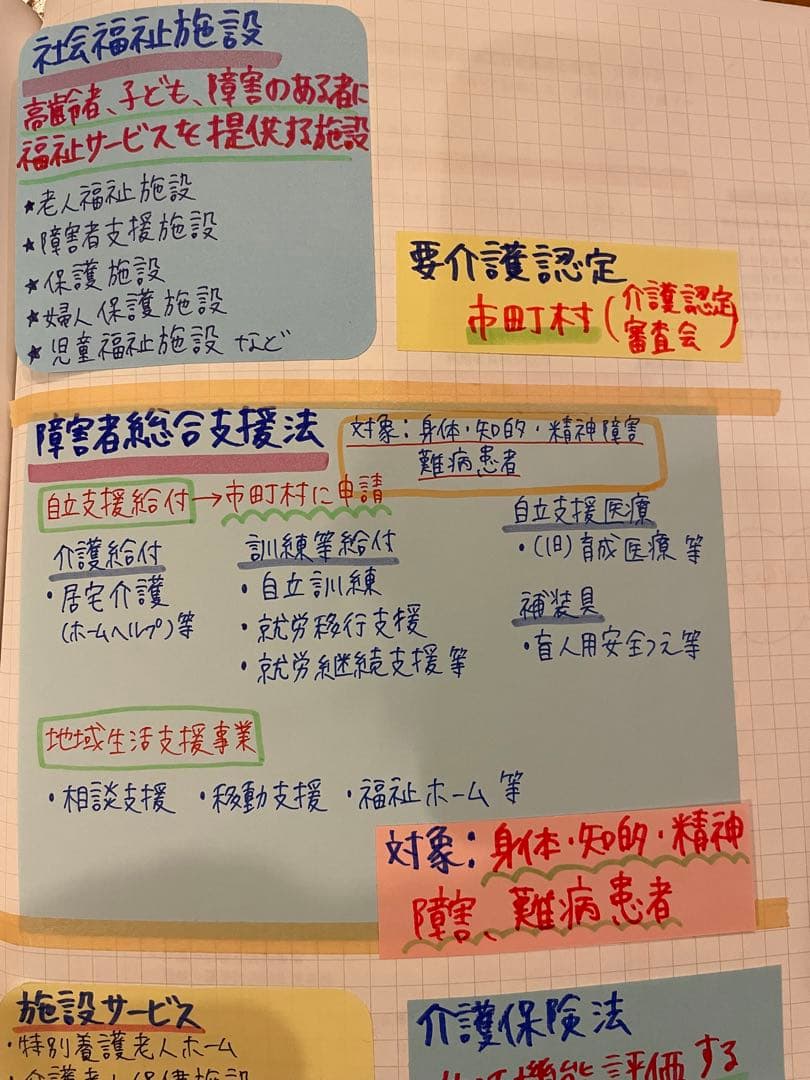 社会福祉施設
高齢者、子ども、障害のある者に
福祉サービスを提供する施設
★老人福祉施設
★障害者支援施設
★保護施設
★婦人保護施設
★児童福祉施設 など
要介護認定
市町村(介護認定
審査会)
障害者総合支援法
対象:身体・知的・精神障害
難病患者
自立支援給付→市町村に申請
介護給付
・居宅介護
(ホームヘルプ)等
訓練等給付
・自立訓練
・就労移行支援
・就労継続支援等
自立支援医療
・(旧)育成医療等
補装具
・盲人用安全つえ等
地域生活支援事業
・相談支援 ・移動支援 ・福祉ホーム 等
対象:身体・知的・精神
障害、難病患者
施設サービス
・特別養護老人ホーム
・介護老人保健施設
介護保険法
機能評価する